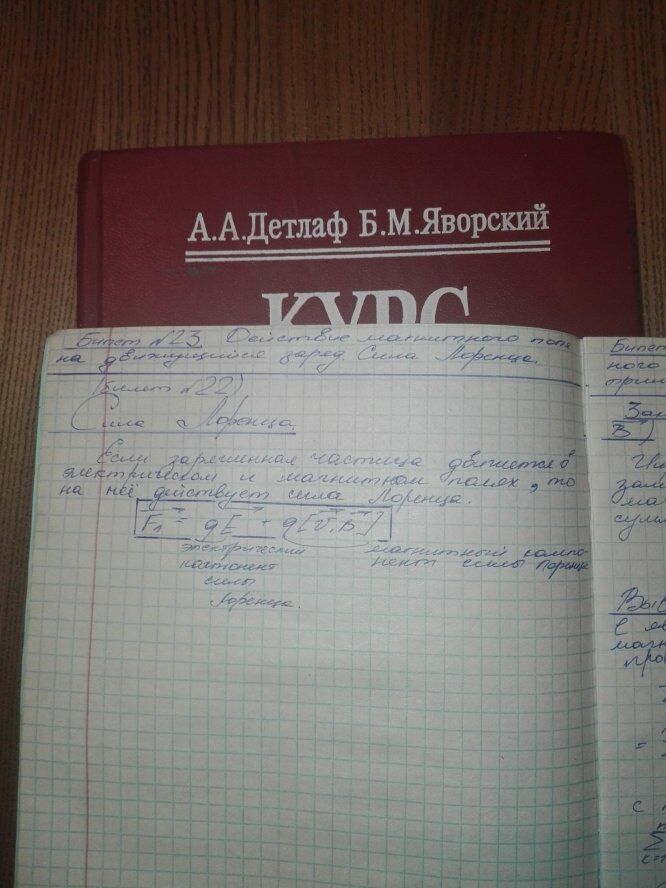 А.А.Детлаф Б.М.Яворский
КУРС
Билет №23. Действие магнитного поля
на движущийся заряд. Сила Лоренца.
(билет №22)
Сила Лоренца.
Если заряженная частица движется в
электрическом и магнитном полях, то
на неё действует сила Лоренца.
F⃗л = qE⃗ + q[v⃗,B⃗]
электрический
компонент
силы
Лоренца.
магнитный компо-
нент силы Лоренца
Билет
ного
прин
Зак
В)
сум
Выв
магн
=
с